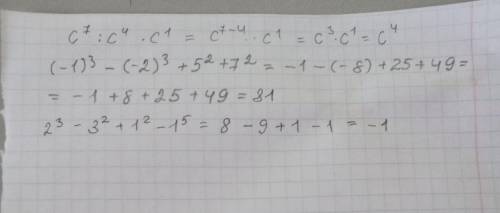 c⁷ : c⁴ · c¹ = c⁷⁻⁴ · c¹ = c³ · c¹ = c⁴
(-1)³ - (-2)³ + 5² + 7² = -1 - (-8) + 25 + 49 =
= -1 + 8 + 25 + 49 = 81
2³ - 3² + 1² - 1⁵ = 8 - 9 + 1 - 1 = -1